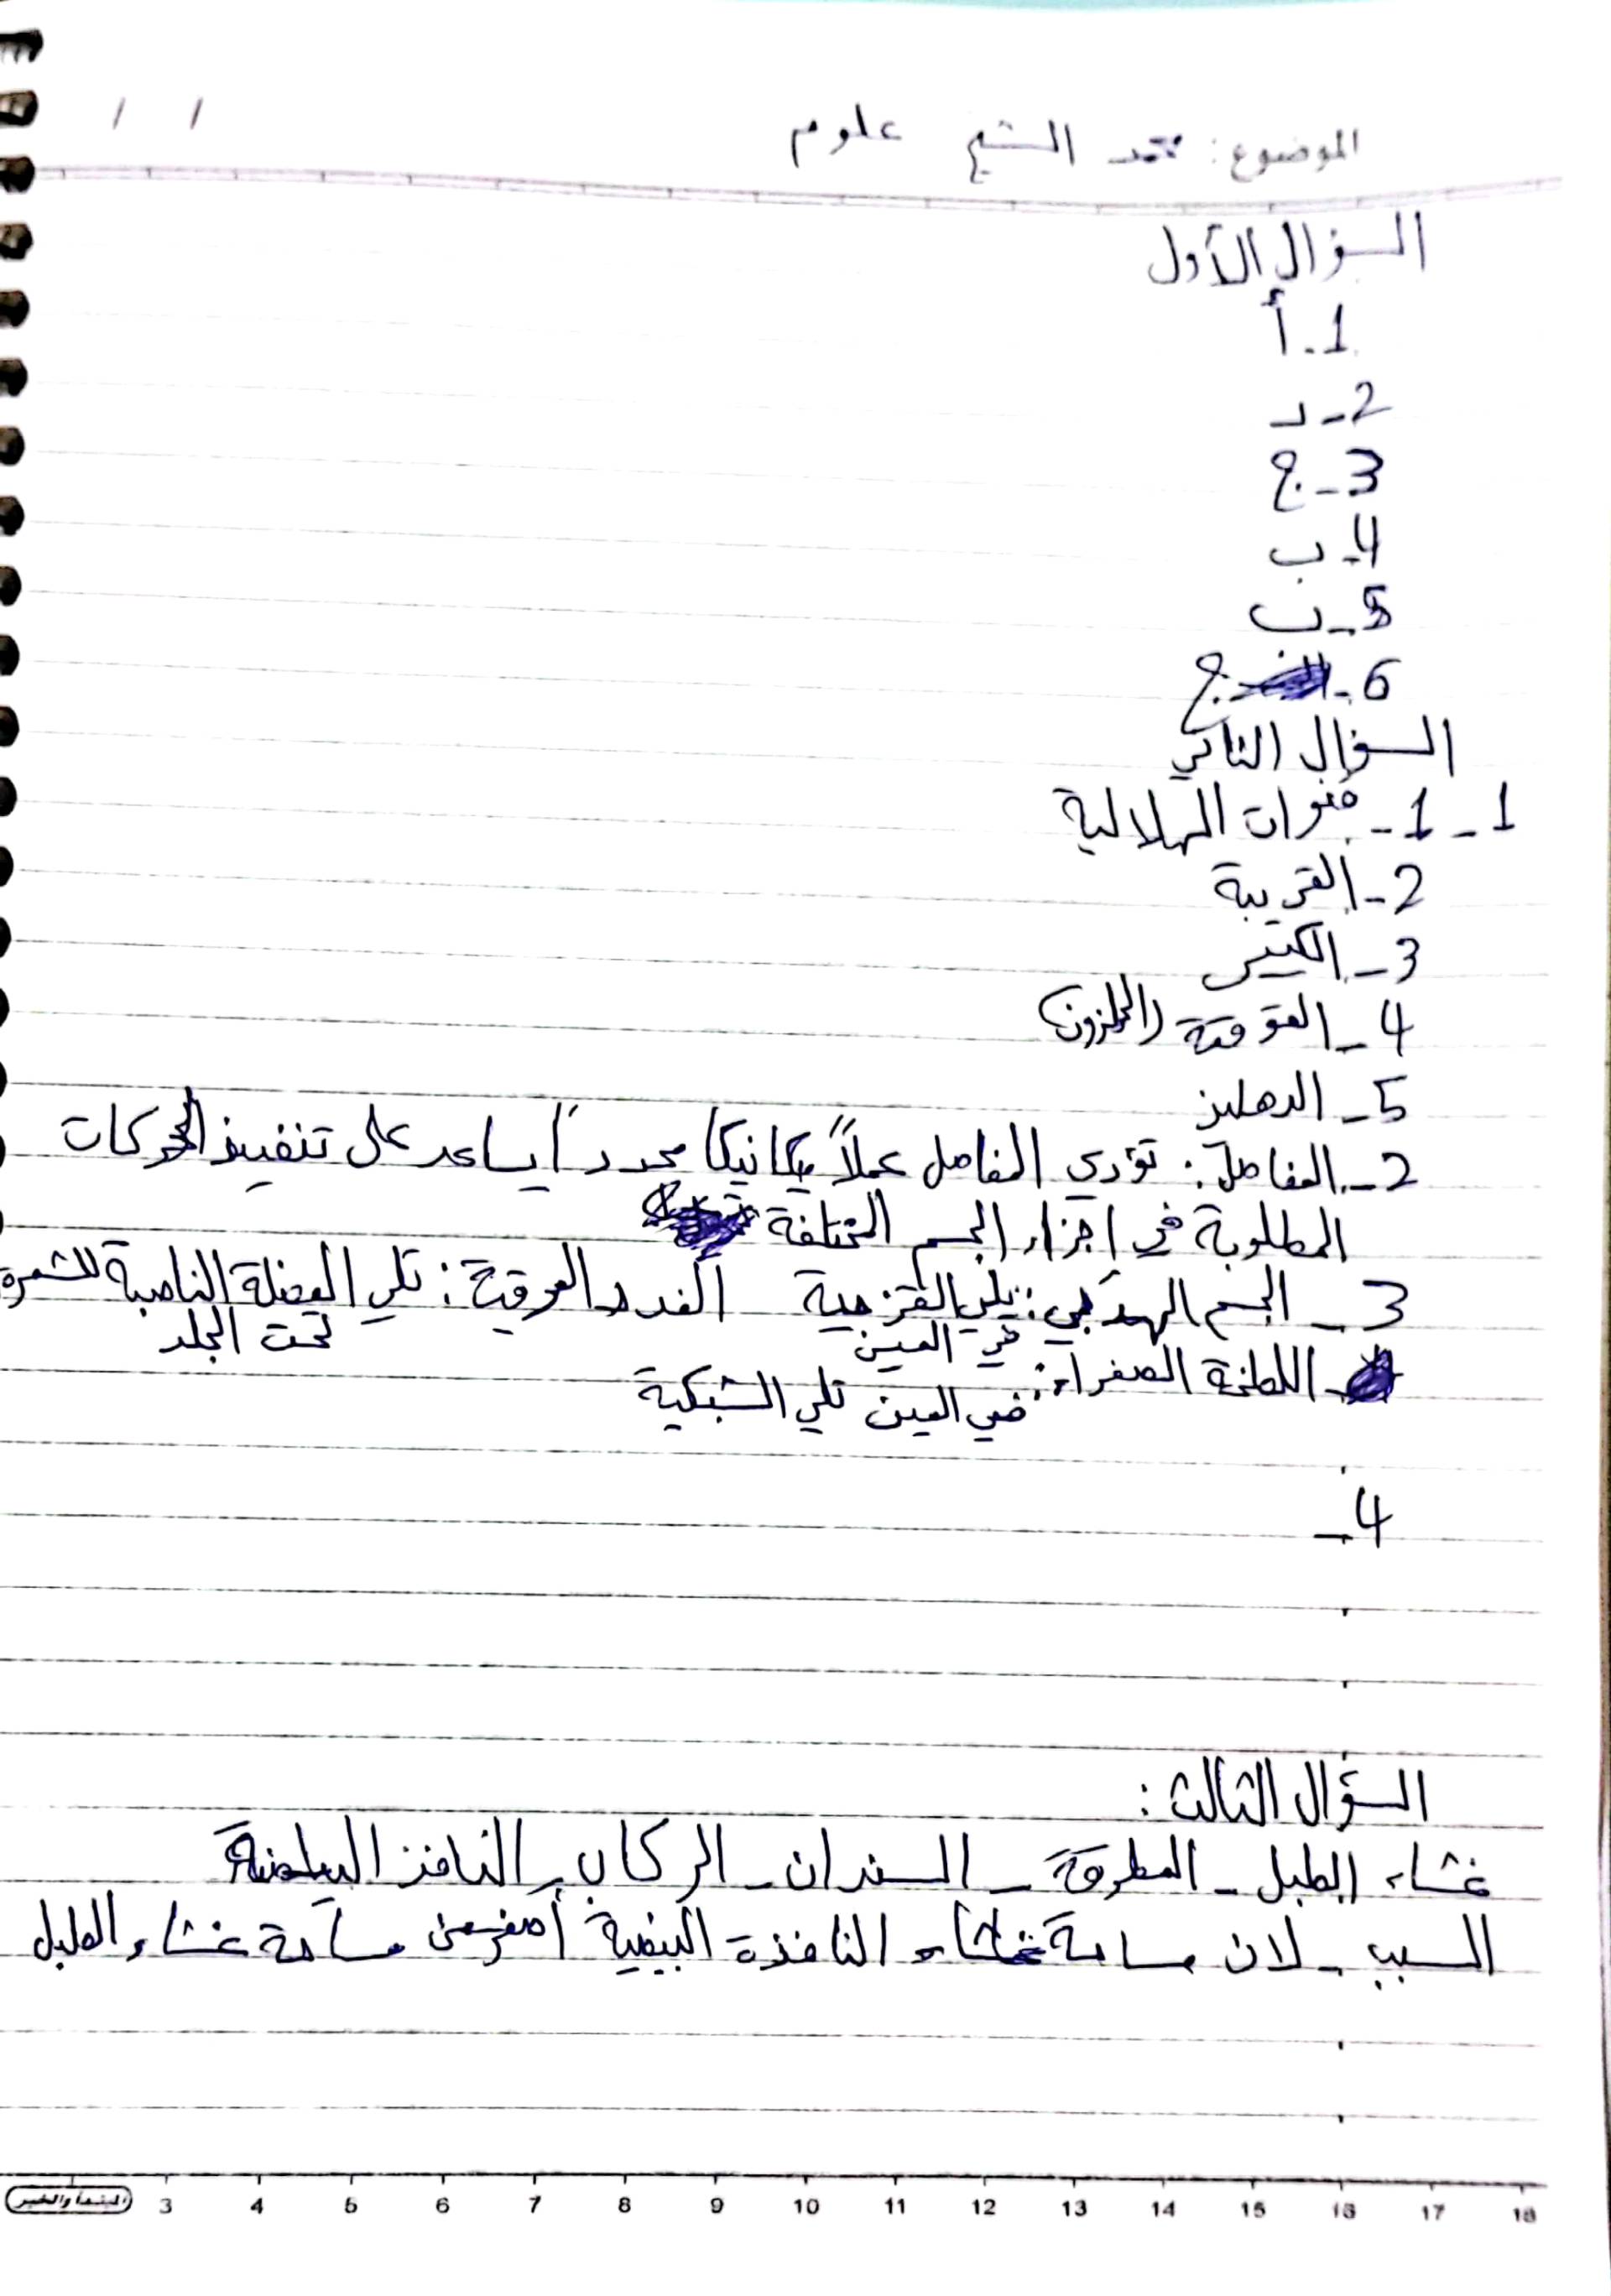 الموضوع: محمد الشيخ علوم / /
السؤال الأول
1. أ
2 - د
3 - ج
4 - ب
5 - ب
6 - ج
السؤال الثاني
1 - 1 - قنوات الهلالية
2 - القريبة
3 - الكييس
4 - القوقعة (الحلزون)
5 - الدهليز
2 - المفاصل: تؤدي المفاصل عملاً ميكانيكا محدداً يساعد على تنفيذ الحركات
المطلوبة في اجزاء الجسم المختلفة
3 - الجسم الهدبي: يلي القزحية - الغدد العرقية: تلي العضلة الناصبة للشعرة
في العين تحت الجلد
- اللطخة الصفراء: في العين تلي الشبكية
4 -
السؤال الثالث:
غشاء الطبل - المطرقة - السندان - الركاب - النافذ البيضية
السبب - لان مساحة غشاء النافذة البيضية أصغر من مساحة غشاء الطبل
المبتدأ والخبر 3 4 5 6 7 8 9 10 11 12 13 14 15 16 17 18